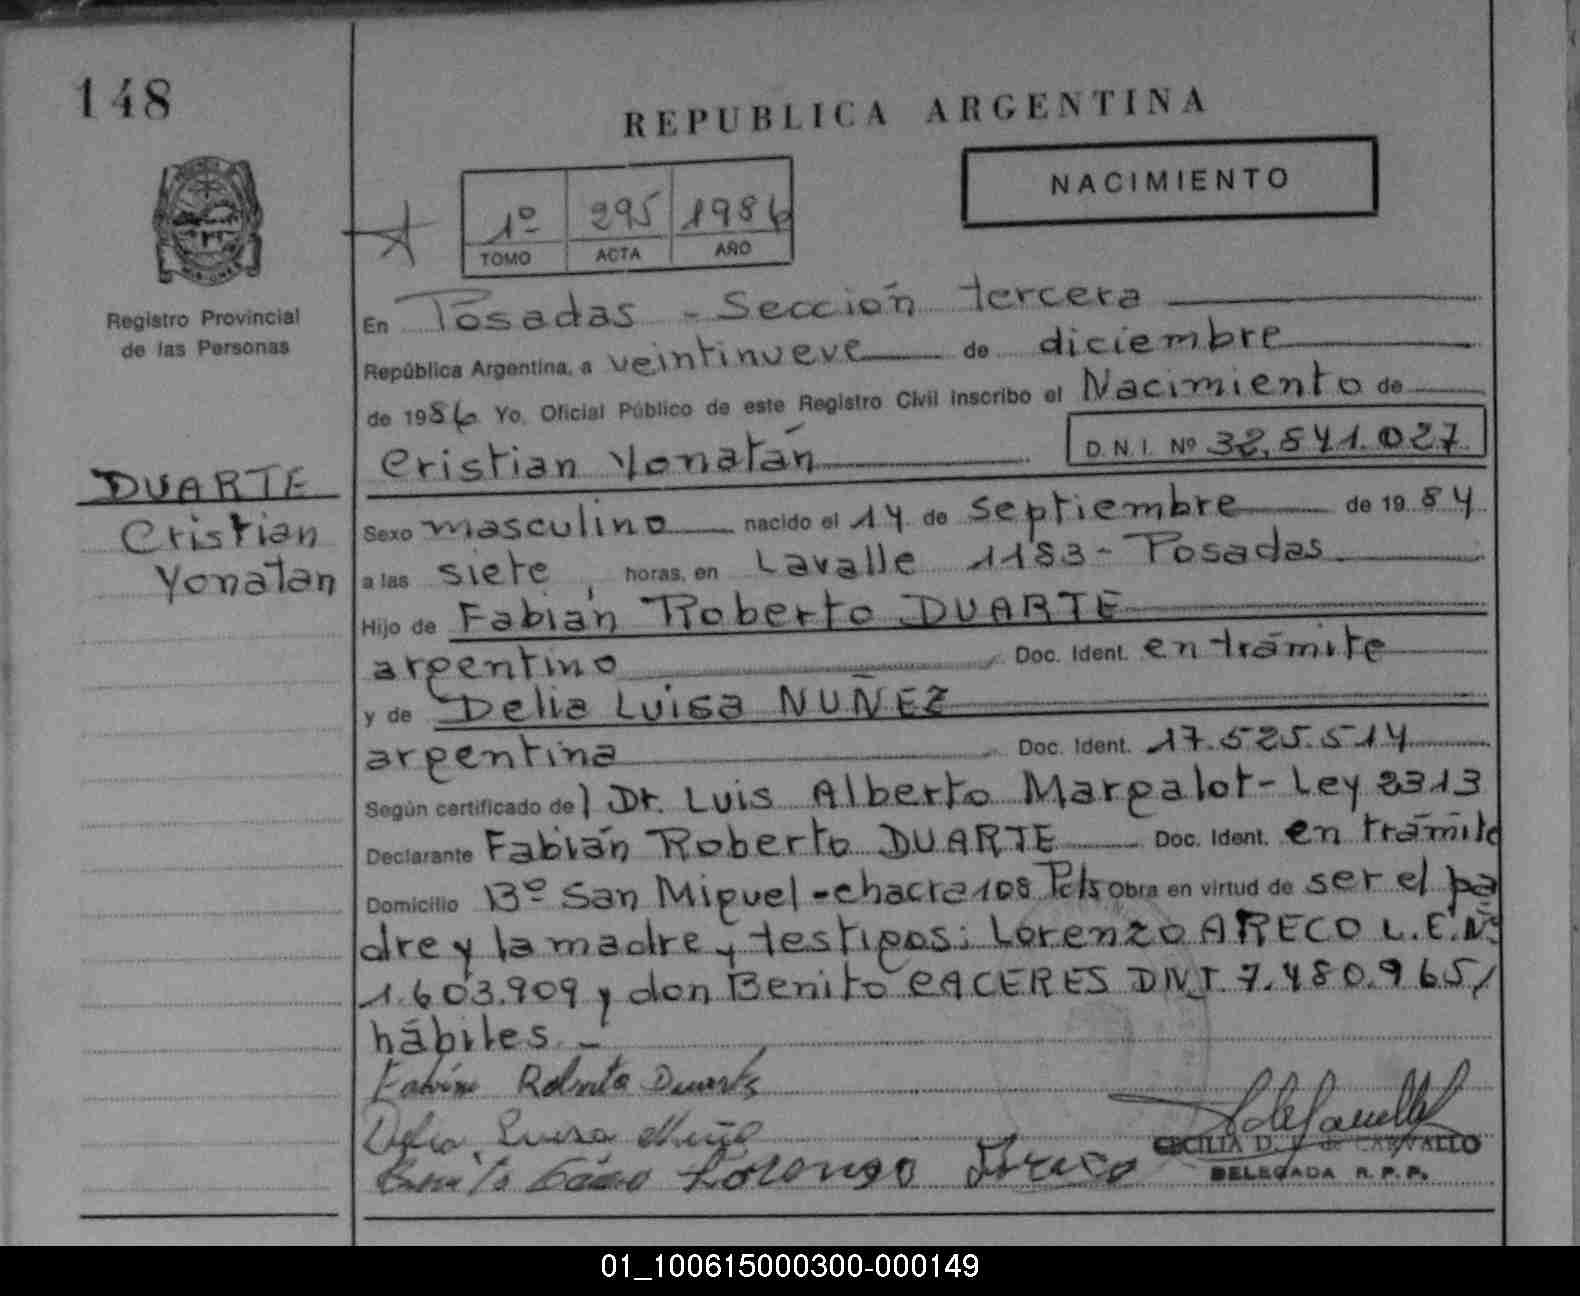 148
REPUBLICA ARGENTINA
NACIMIENTO
1º 295 1986
TOMO ACTA AÑO
Registro Provincial
de las Personas
En Posadas - Sección tercera
República Argentina, a veintinueve de diciembre
de 1986 Yo, Oficial Público de este Registro Civil inscribo el Nacimiento de
Cristian Yonatán D.N.I. Nº 32.841.027
DUARTE
Cristian
Yonatan
Sexo masculino nacido el 14 de septiembre de 1984
a las siete horas, en Lavalle 1183 - Posadas
Hijo de Fabián Roberto DUARTE
argentino Doc. Ident. en trámite
y de Delia Luisa NUÑEZ
argentina Doc. Ident. 17.525.514
Según certificado de Dr. Luis Alberto Margalot - Ley 2313
Declarante Fabián Roberto DUARTE Doc. Ident. en trámite
Domicilio Bº San Miguel - chacra 108 Pdas Obra en virtud de ser el pa
dre y la madre, testigos: Lorenzo ARECO L.E.Nº
1.603.909 y don Benito CACERES DNI. 7.480.965/
hábiles.-
Fabián Roberto Duarte
Delia Luisa Nuñez
Benito Lorenzo Areco
CECILIA D. de CARVALLO
DELEGADA R.P.P.
01_100615000300-000149